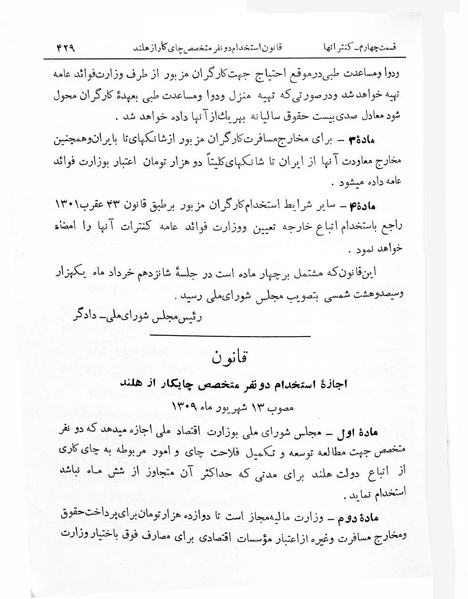 قسمت چهارم ـ کنتراتها قانون استخدام دو نفر متخصص چای کار از هلند ۴۲۹
ودوا ومساعدت طبی درموقع احتیاج جهت کارگران مزبور از طرف وزارت فوائد عامه
تهیه خواهد شد ودرصورتی که تهیه منزل ودوا ومساعدت طبی بعهدۀ کارگران محول
شود معادل صدی بیست حقوق سالیانه بهریک از آنها داده خواهد شد .
مادۀ ۳ ـ برای مخارج مسافرت کارگران مزبور از شانگهای تا بایران وهمچنین
مخارج معاودت آنها از ایران تا شانگهای کلیتاً دو هزار تومان اعتبار بوزارت فوائد
عامه داده میشود .
مادۀ ۴ ـ سایر شرایط استخدام کارگران مزبور برطبق قانون ۲۳ عقرب ۱۳۰۱
راجع باستخدام اتباع خارجه تعیین ووزارت فوائد عامه کنترات آنها را امضاء
خواهد نمود .
این قانون که مشتمل بر چهار ماده است در جلسۀ شانزدهم خرداد ماه یکهزار
وسیصدوهشت شمسی بتصویب مجلس شورای ملی رسید .
رئیس مجلس شورای ملی ـ دادگر
قانون
اجازۀ استخدام دو نفر متخصص چایکار از هلند
مصوب ۱۳ شهریور ماه ۱۳۰۹
مادۀ اول ـ مجلس شورای ملی بوزارت اقتصاد ملی اجازه میدهد که دو نفر
متخصص جهت مطالعه توسعه و تکمیل فلاحت چای و امور مربوطه به چای کاری
از اتباع دولت هلند برای مدتی که حداکثر آن متجاوز از شش ماه نباشد
استخدام نماید .
مادۀ دوم ـ وزارت مالیه مجاز است تا دوازده هزار تومان برای پرداخت حقوق
ومخارج مسافرت وغیره از اعتبار مؤسسات اقتصادی برای مصارف فوق باختیار وزارت